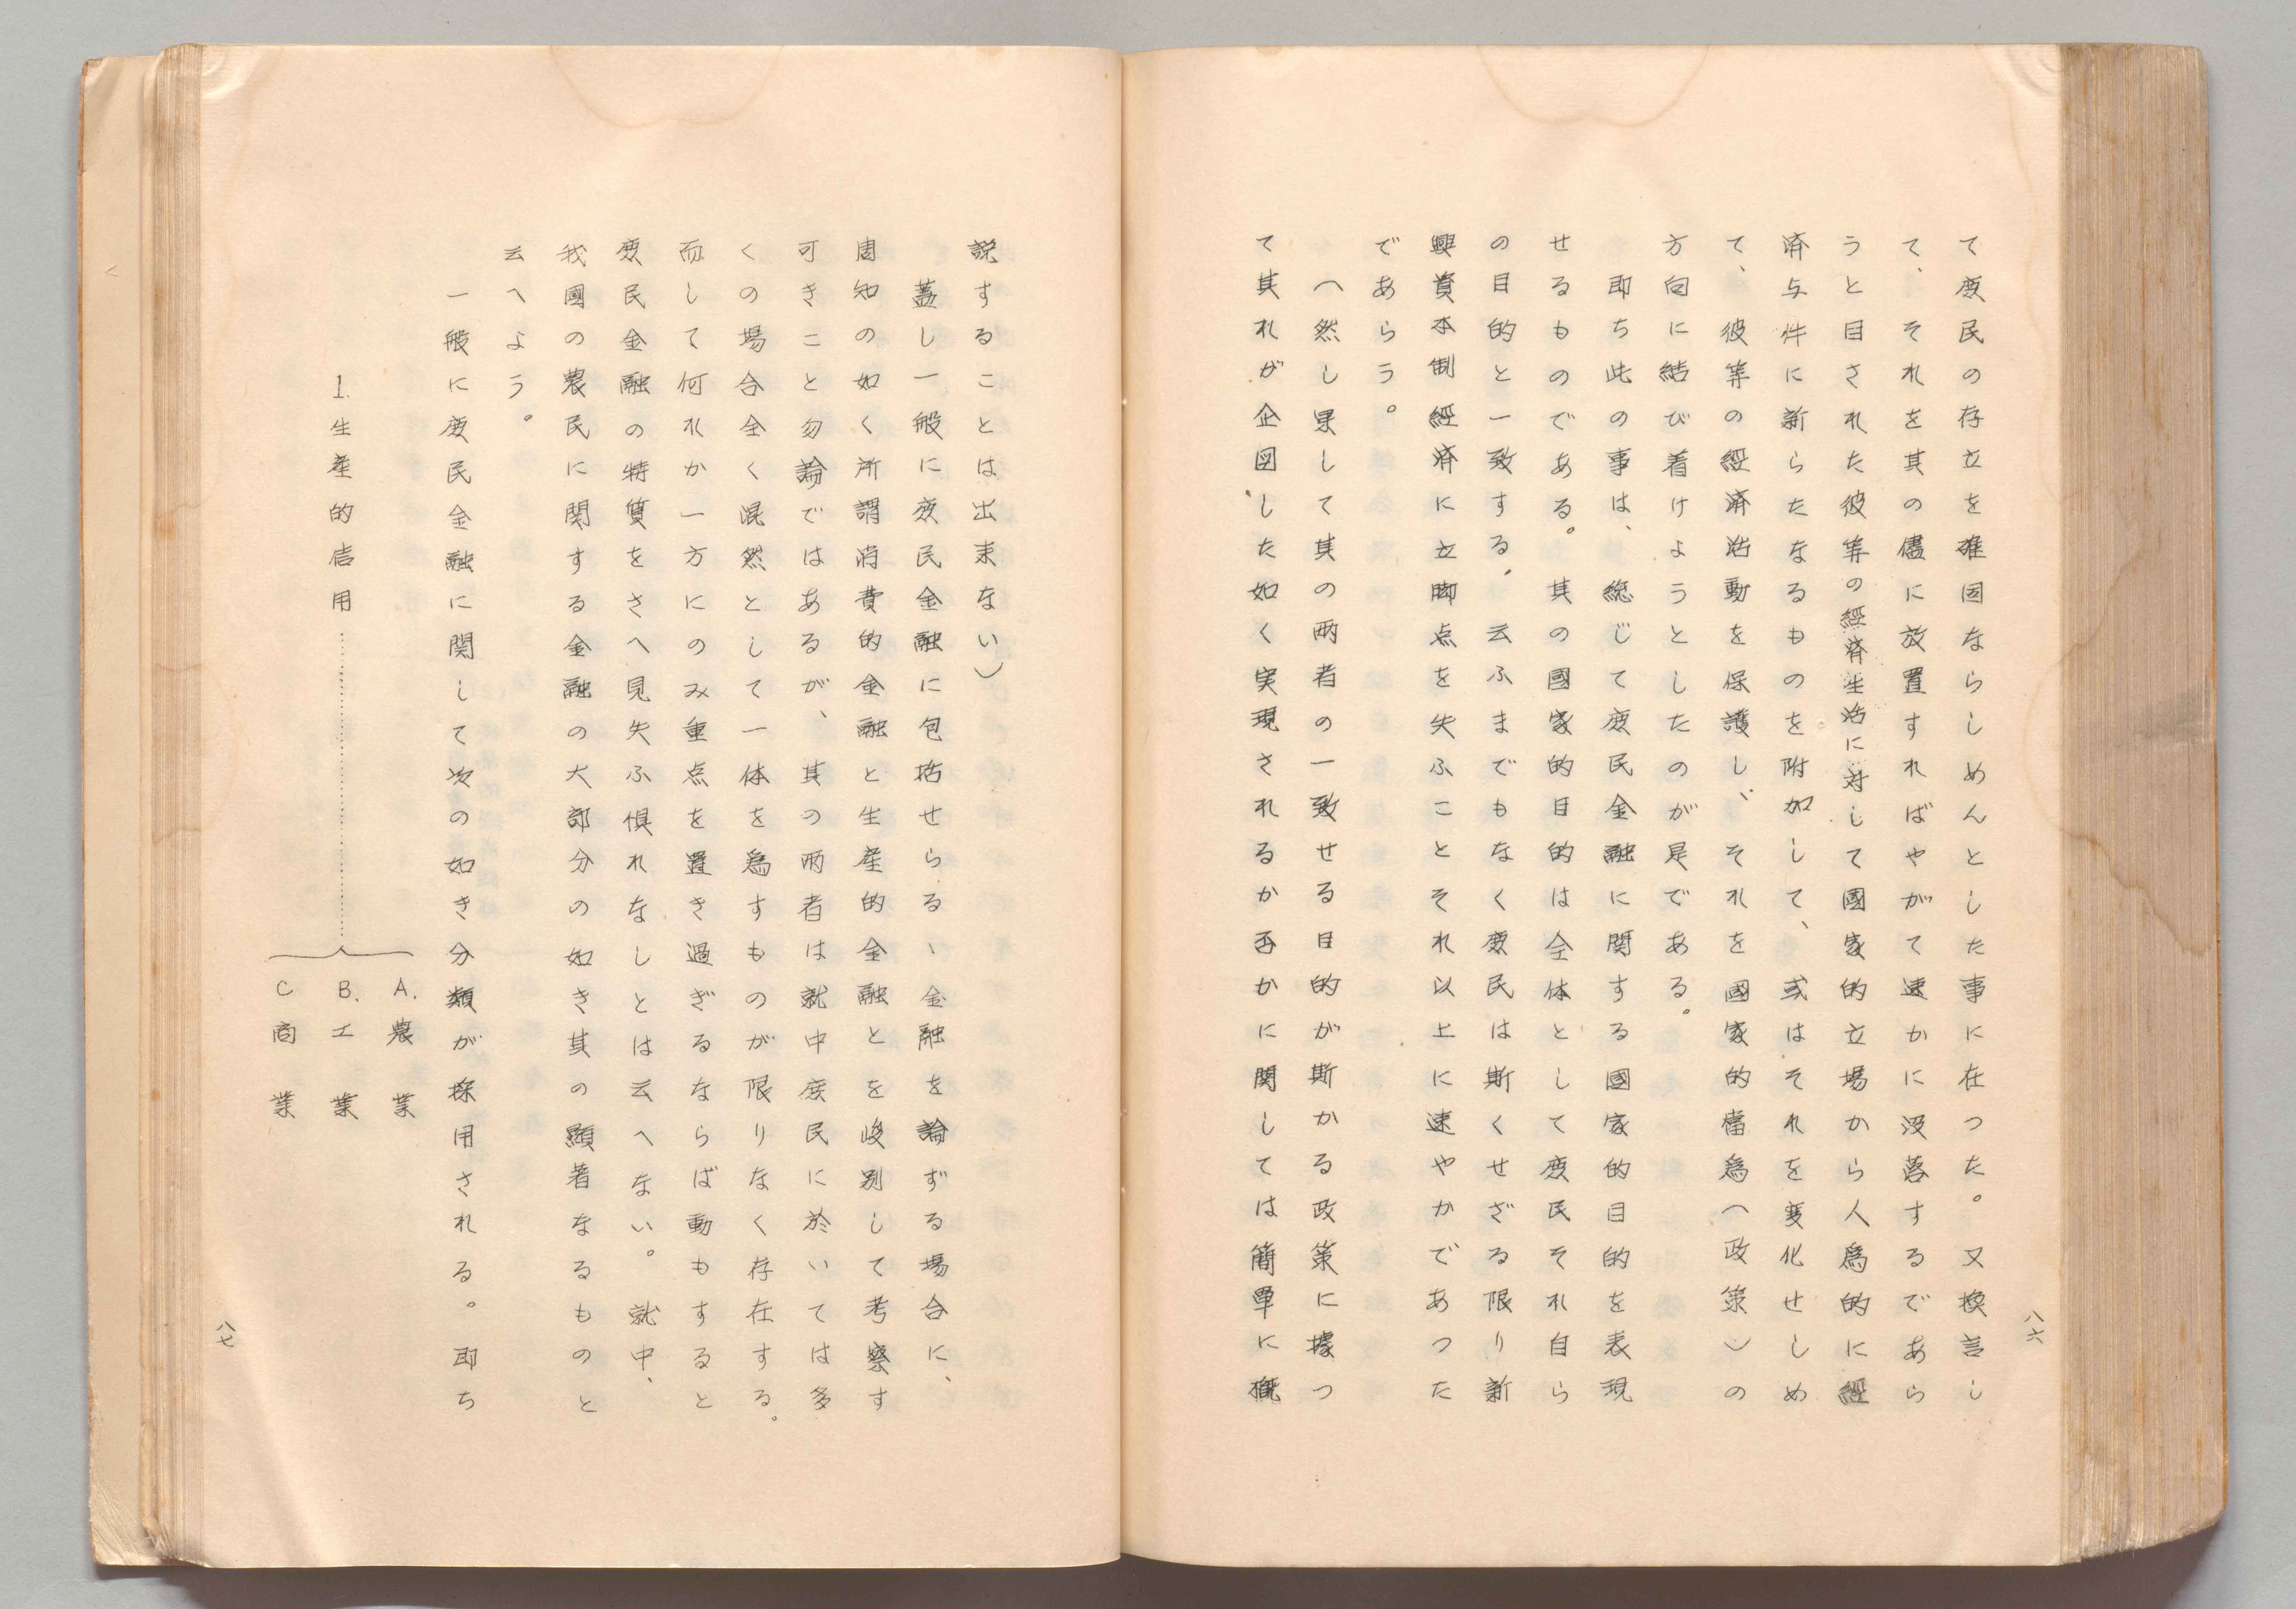 て庶民の存立を確固ならしめんとした事に在つた。又換言し
て、それを其の儘に放置すればやがて速かに没落するであら
うと目された彼等の經済生活に対して國家的立場から人爲的に經
済与件に新らたなるものを附加して、或はそれを変化せしめ
て、彼等の經済活動を保護し、それを國家的當爲（政策）の
方向に結び着けようとしたのが是である。
即ち此の事は、総じて庶民金融に関する國家的目的を表現
せるものである。其の國家的目的は全体として庶民それ自ら
の目的と一致する。云ふまでもなく庶民は斯くせざる限り新
興資本制經済に立脚点を失ふことそれ以上に速やかであつた
であらう。
（然し果して其の両者の一致せる目的が斯かる政策に據つ
て其れが企図した如く実現されるか否かに関しては簡單に概
八六
説することは出来ない）
蓋し一般に庶民金融に包括せらるヽ金融を論ずる場合に、
周知の如く所謂消費的金融と生産的金融とを峻別して考察す
可きこと勿論ではあるが、其の両者は就中庶民に於いては多
くの場合全く混然として一体を爲すものが限りなく存在する。
而して何れか一方にのみ重点を置き過ぎるならば動もすると
庶民金融の特質をさへ見失ふ倶れなしとは云へない。就中、
我國の農民に関する金融の大部分の如き其の顯著なるものと
云へよう。
一般に庶民金融に関して次の如き分類が採用される。即ち
1.生産的信用……………
A.農業
B.工業
C商業
八七